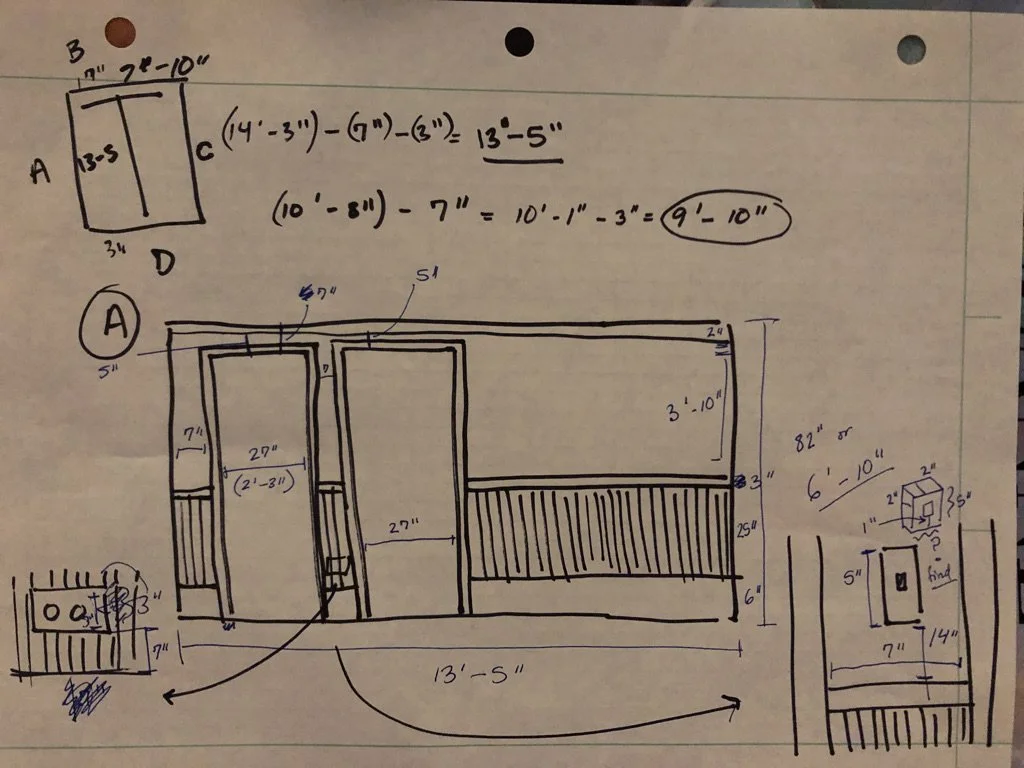 B
7" 7'-10"
A
13-5
C
(14'-3") - (7") - (3") = 13'-5"
(10'-8") - 7" = 10'-1" - 3" = 9'-10"
3"
D
A
7"
5'
5"
2"
7
3'-10"
7"
27"
(2'-3")
27"
3"
25"
6"
13'-5"
82" or
6'-10"
2"
2"
5"
1"
?
find
5"
14"
7"
3"
7"